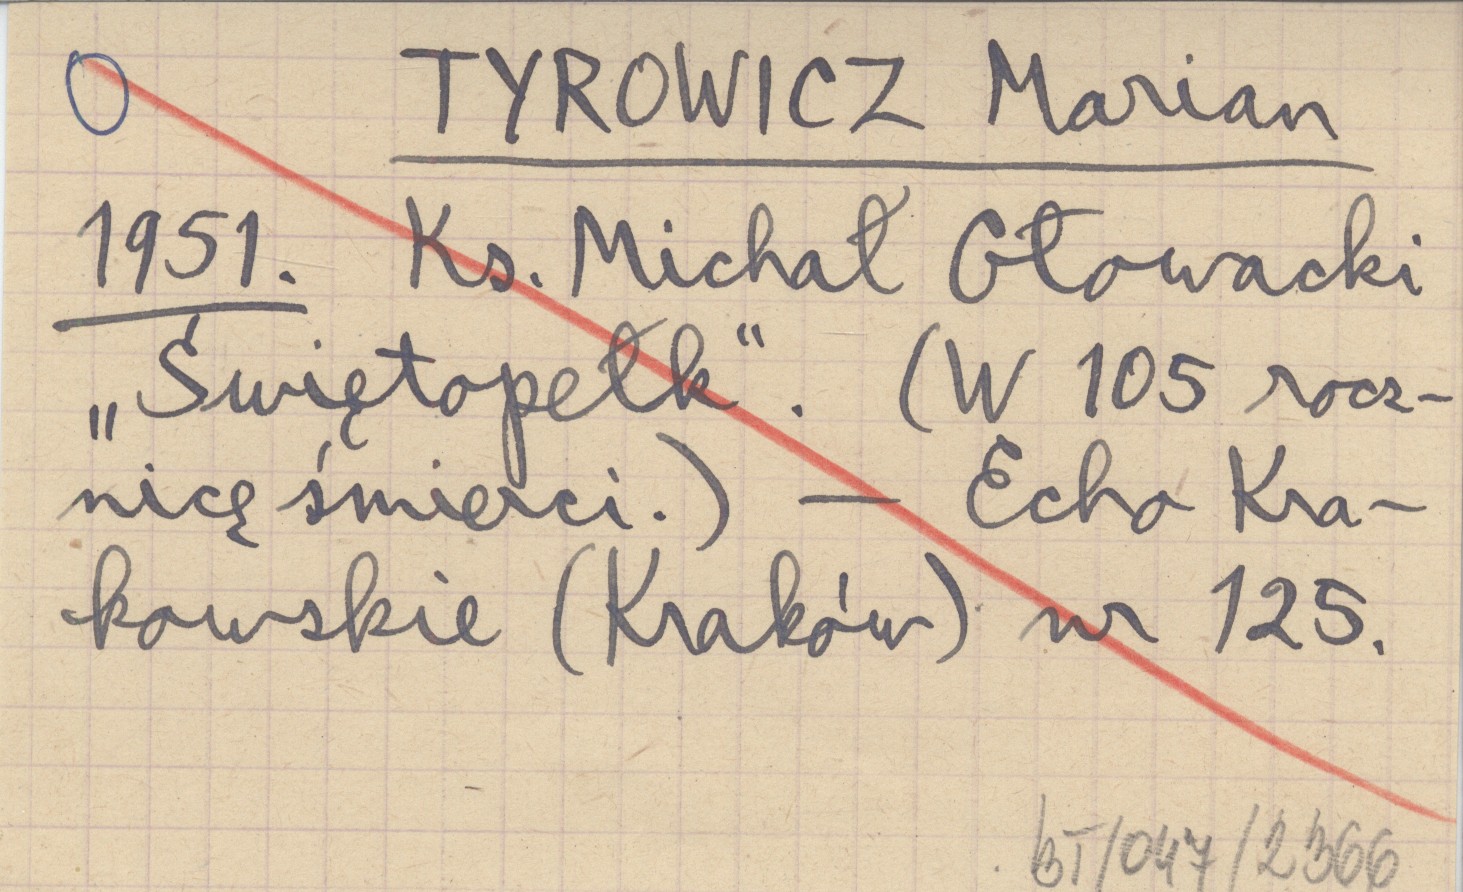 TYROWICZ Marian
1951. Ks. Michał Głowacki
„Świętopełk“. (W 105 rocz-
nicę śmierci.) — Echo Kra-
kowskie (Kraków) nr 125.
BT/047/2366